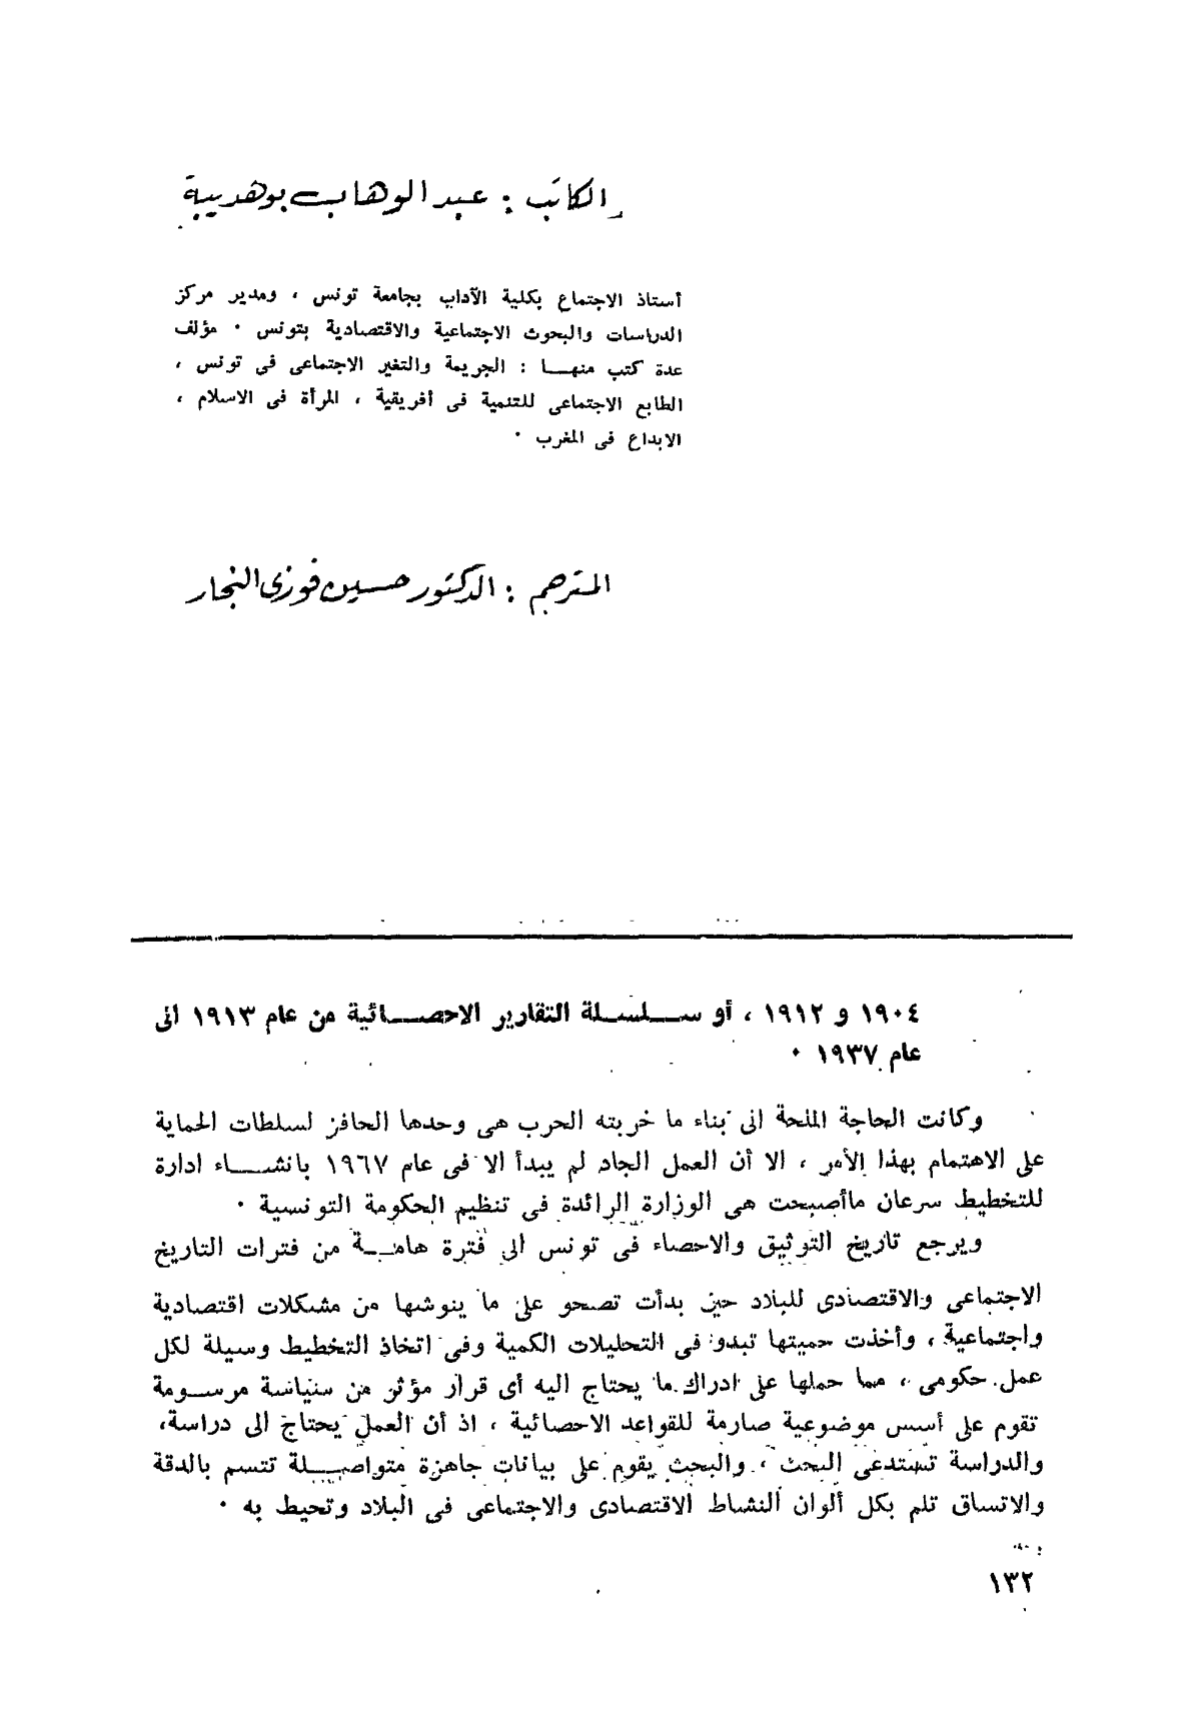 الكاتب : عبد الوهاب بوهديبة
أستاذ الاجتماع بكلية الآداب بجامعة تونس ، ومدير مركز
الدراسات والبحوث الاجتماعية والاقتصادية بتونس . مؤلف
عدة كتب منهـــا : الجريمة والتغير الاجتماعى فى تونس ،
الطابع الاجتماعى للتنمية فى أفريقية ، المرأة فى الاسلام ،
الابداع فى المغرب .
المترجم : الدكتور حسين فوزى النجار
١٩٠٤ و ١٩١٢ ، أو ســـلسـلة التقارير الاحصـــائية من عام ١٩١٣ الى
عام ١٩٣٧ .
وكانت الحاجة الملحة الى بناء ما خربته الحرب هى وحدها الحافز لسلطات الحماية
على الاهتمام بهذا الأمر ، الا أن العمل الجاد لم يبدأ الا فى عام ١٩٦٧ بانشـــاء ادارة
للتخطيط سرعان ماأصبحت هى الوزارة الرائدة فى تنظيم الحكومة التونسية .
ويرجع تاريخ التوثيق والاحصاء فى تونس الى فترة هامــة من فترات التاريخ
الاجتماعى والاقتصادى للبلاد حين بدأت تصحو على ما ينوشها من مشكلات اقتصادية
واجتماعية ، وأخذت حميتها تبدو فى التحليلات الكمية وفى اتخاذ التخطيط وسيلة لكل
عمل حكومى ، مما حملها على ادراك ما يحتاج اليه أى قرار مؤثر من سياسة مرســومة
تقوم على أسس موضوعية صارمة للقواعد الاحصائية ، اذ أن العمل يحتاج الى دراسة،
والدراسة تستدعى البحث ، والبحث يقوم على بيانات جاهزة متواصـــلة تتسم بالدقة
والاتساق تلم بكل ألوان النشاط الاقتصادى والاجتماعى فى البلاد وتحيط به .
١٣٢